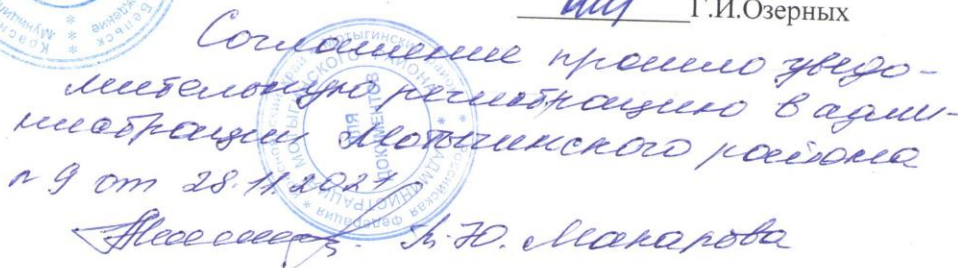 Г.И.Озерных
Соглашение прошло уведо-
мительную регистрацию в адми-
нистрации Мотыгинского района
п 9 от 28.11.2021
Ю. Макарова
МОТЫГИНСКОГО РАЙОНА
АДМИНИСТРАЦИЯ
ДЛЯ
ДОКУМЕНТОВ
Российская Федерация